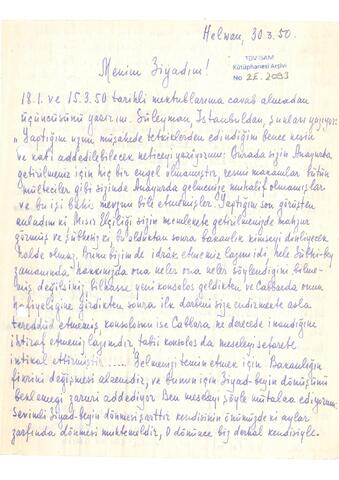 Helwan, 30.3.50.
TDV İSAM
Kütüphanesi Arşivi
No 2E.2093
Menim Ziyadım!
18.1. ve 15.3.50 tarihli mektublarıma cavab almadan
üçüncüsünü yazırım. Süleyman, İstanbuldan, şunları yazıyor:
"Yaptığım uzun müşahede tetkiklerden edindiğim bence kesin
ve kati addedilebilecek neticeyi yazıyorum: Burada sizin Anayurda
getirilmeniz için hiç bir engel olmamıştır, resmi makamlar bütün
mülteciler gibi sizinde Anayurda gelmenize muhalif olmamışlar
ve bu işi bahis mevzuu bile etmemişler. Yaptığım son görüşten
anladım ki Mısır Elçiliği sizin memlekete getirilmenizde mahzur
görmüş ve şübhesiz ki, bu olduktan sonra bakanlık kimseyi dinliyecek
halde olmaz. Bunu bizim de idrak etmemiz lazımidi, hele
zamanında hakkınızda ona neler ona neler söylendiğini bilme-
miş değilsiniz, bilhasse yeni konsolos geldikten ve Cabbarda onun
girdikten sonra ilk darbeni size endirmekte asla
tereddüd etmemiş, konsolosun ise Cabbara ne derecede inandığını
ihtiraf etmemiz lazımdır tabii konsolos da meseleyi sefarete
intikal ettirmiştir...... Gelmenizi temin etmek için Bakanlığın
fikrini değişmesi elzemdir, ve bunun için Ziyad-beyin dönüşünü
beklemeği zaruri addediyor. Ben meseleyi şöyle mütalaa ediyorum:
Sevimli Ziyad-beyin dönmesi şarttır kendisinin önümüzde ki aylar
zarfında dönmesi muhtemeldir, O dönünce biz derhal kendisiyle.